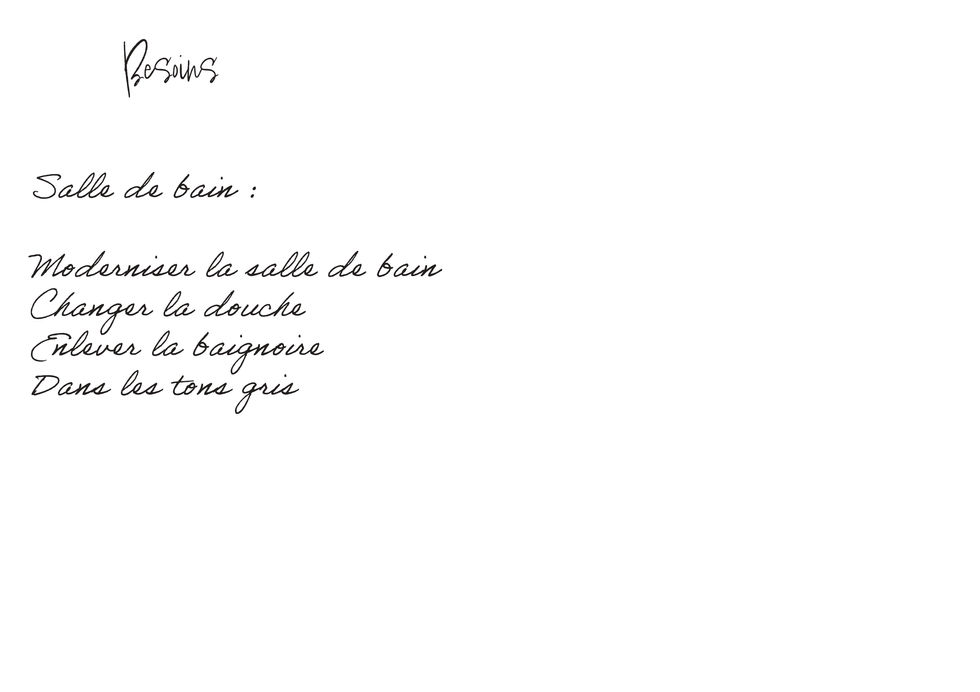 Besoins
Salle de bain :
Moderniser la salle de bain
Changer la douche
Enlever la baignoire
Dans les tons gris